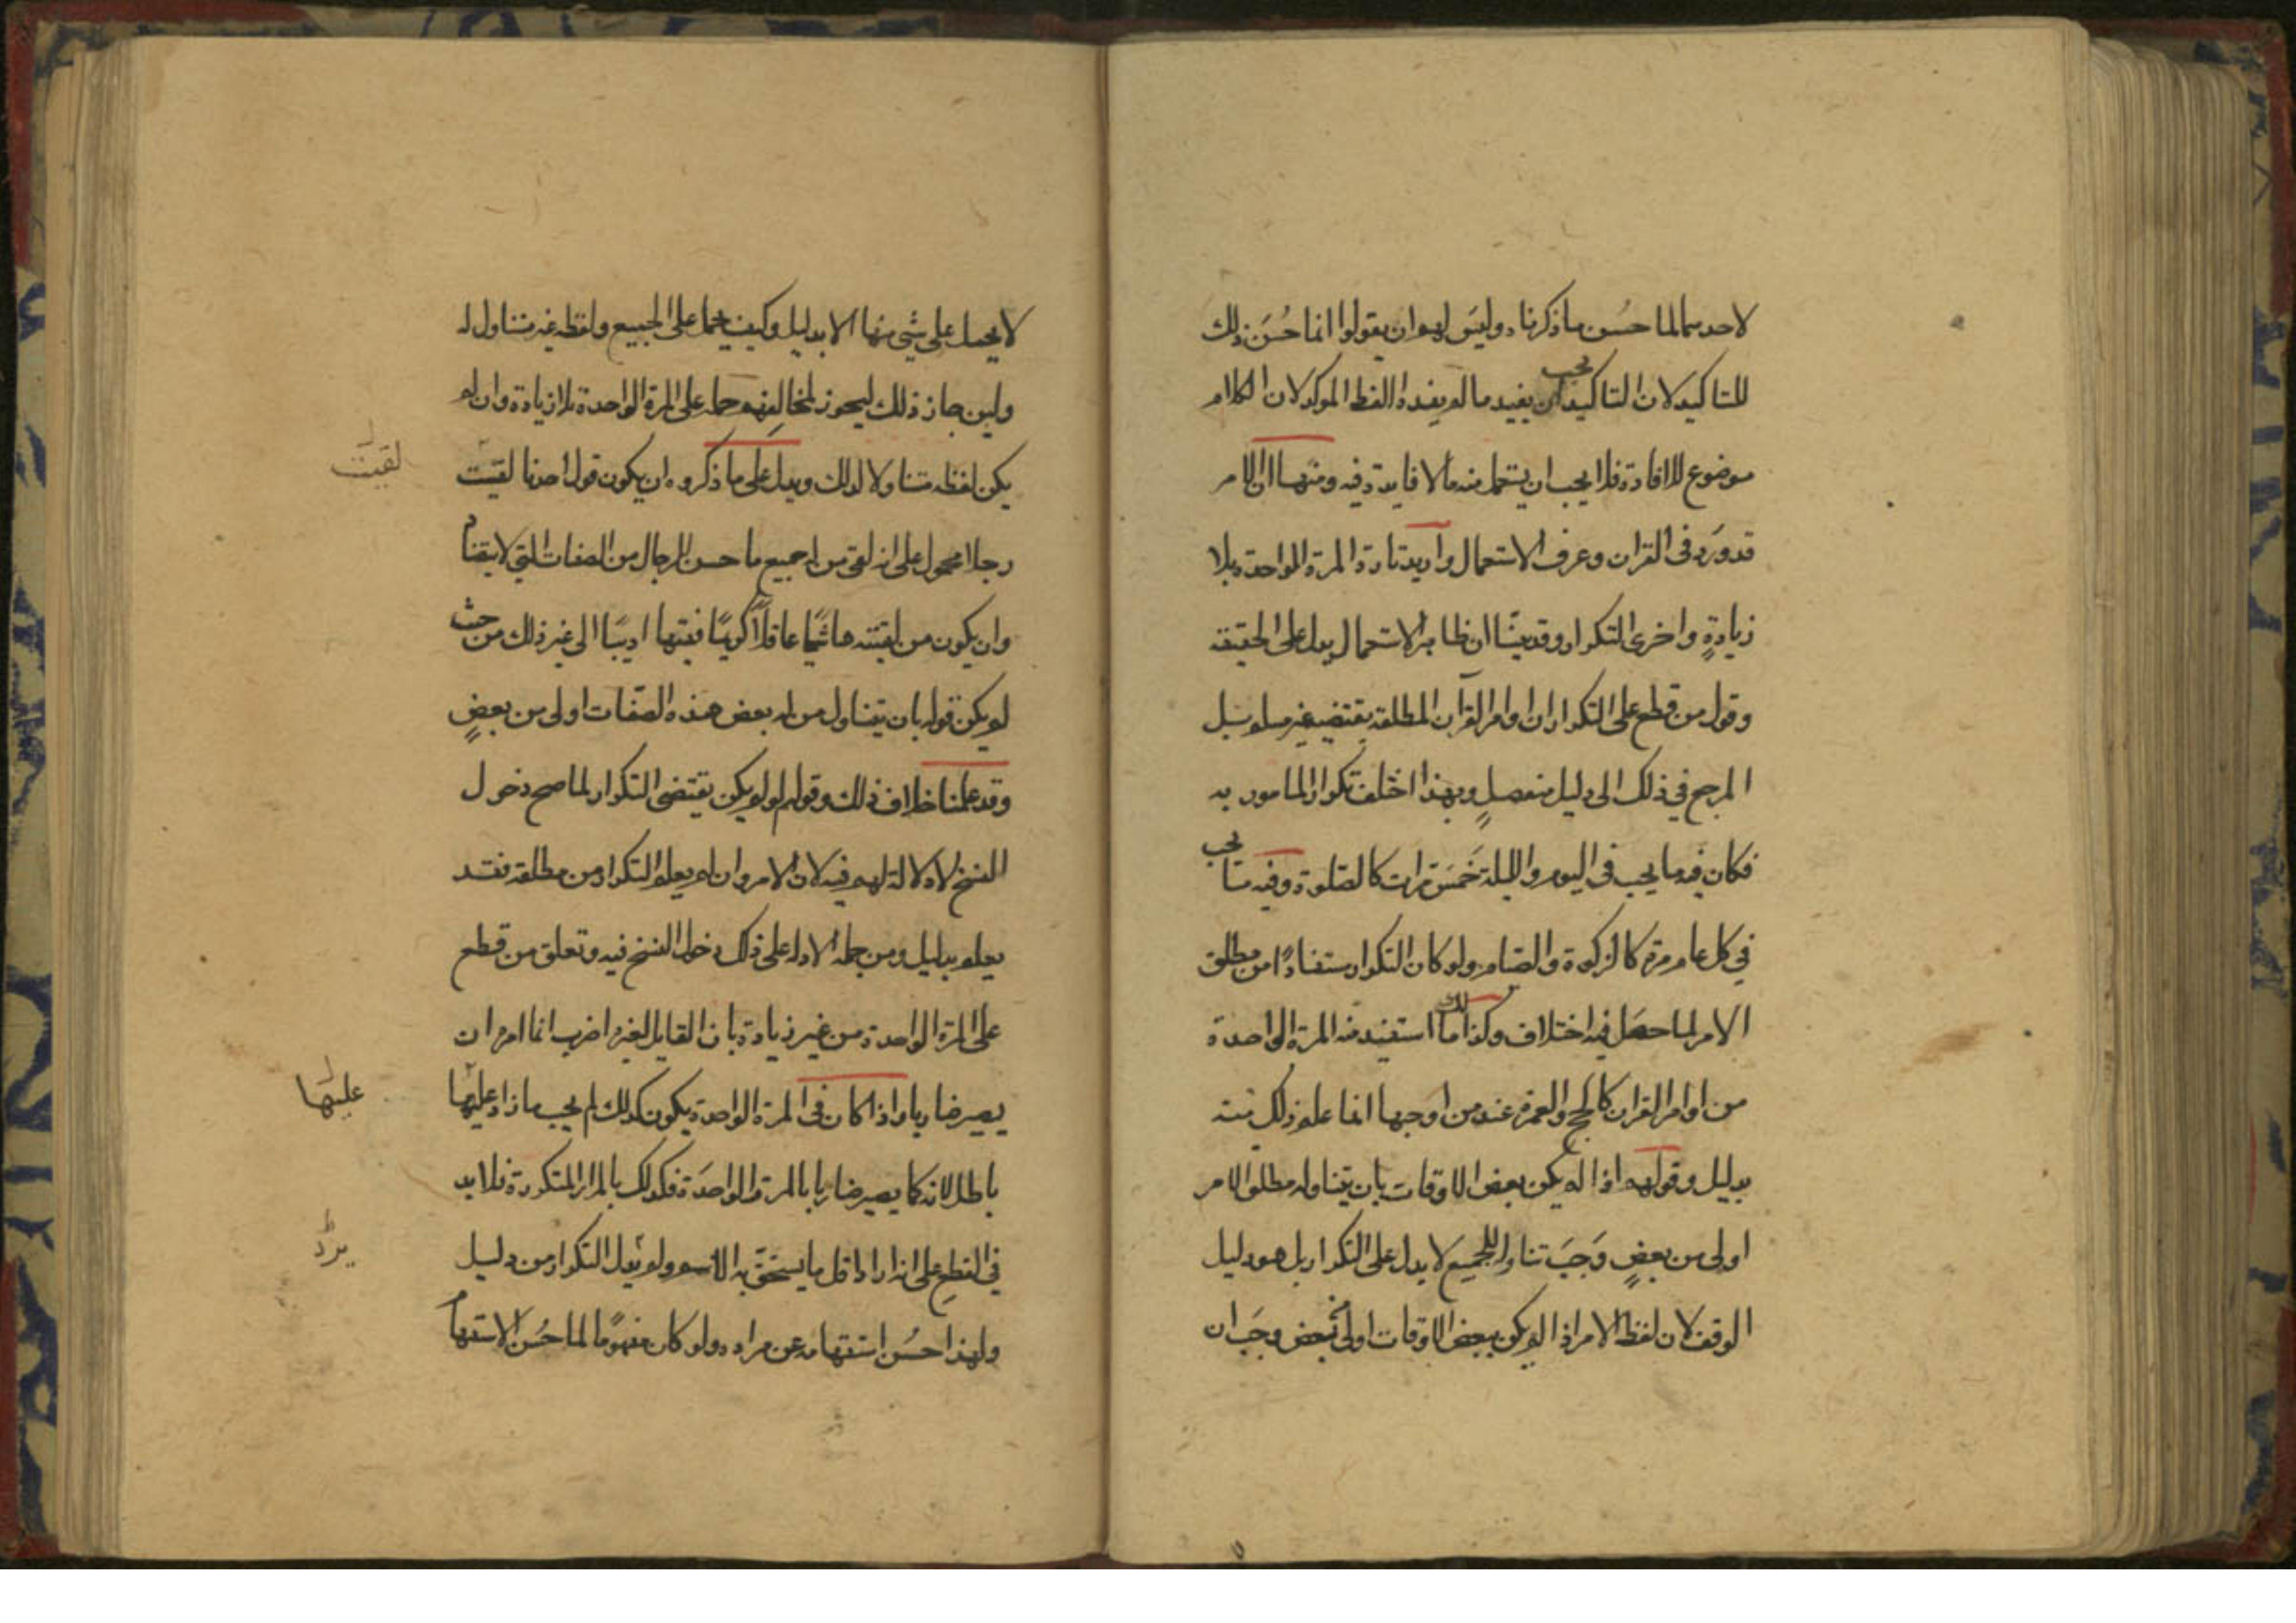 لاحدهما لما حسُن ما ذكرناه وليس لهم ان يقولوا انما حُسَن ذلك
للتاكيد لان التاكيد يجب ان يفيد ما لم يفده اللفظ الموكد لان الكلام
موضوع للافادة فلا يجب ان يستعمل منه ما لا فايدة فيه ومنها ان الامر
قد ورَد في القران وعرف الاستعمال واريد تارة المرة الواحدة بلا
زيادةٍ واخرى التكرار وقد بينّا ان ظاهر الاستعمال يدل على الحقيقة
وقول من قطع على التكرار ان اوامر القرآن المطلقة يقتضيه غير مسلم بل
المرجع في ذلك الى دليل منفصلٍ وبهذا اختلف تكرار المامور به
فكان فيه ما يجب في اليوم والليلة خَمسَ مرات كالصلوة وفيه ما يجب
في كل عام مرة كالزكوة والصيام ولو كان التكرار مستفادًا من مطلق
الامر لما حصَل فيه اختلاف وكذلك ما استفيد منه المرة الواحدة
من اوامر القران كالحج والعمرة عند من اوجبها انما علم ذلك منه
بدليل وقولهم اذا لم يكن بعض الاوقات بان يتناوله مطلق الامر
اولى من بعضٍ وَجَبَ تناوله للجميع لا يدل على التكرار بل هو دليل
الوقف لان لفظ الامر اذا لم يكن ببعض الاوقات اولى من بعض وجَب ان
لا يحمل على شي منها الا بدليل وكيف يحمل على الجميع ولفظه غير متناول له
ولين جاز ذلك ليجوز لمخالفهم حمله على المرة الواحدة بلا زيادة وان لم
يكن لفظه متناولا لذلك ويدل على ما ذكروه ان يكون قول احدنا لقيت
رجلا محمول على انه لقي من له جميع ما حسن الرجال من الصفات التي لا
وان يكون من لقيته هاشميًّا عاقلاً كريمًا فقيها اديبًا الى غير ذلك من حيث
لم يكن قوله بان يتناول من له بعض هذه الصفات اولى من بعضٍ
وقد علمنا خلاف ذلك وقولهم لو لم يكن يقتضى التكرار لما صح دخول
النسخ لا دلالة لهم فيه لان الامر وان لم يعلم التكرار من مطلقه فقد
يعلم بدليل ومن جملة الادلة على ذلك دخول النسخ فيه وتعلق من قطع
على المرة الواحدة من غير زيادة بان القايل لغيره اضرب انما امره ان
يصير ضاربا واذا كان في المرة الواحدة يكون كذلك لم يجب ما زاد عليها
باطل لانه كما يصير ضاربا بالمرة الواحدَة فكذلك بالمرار المتكررة فلا بد
في القطع على انه اراد اقل ما يستحق به الاسم ولم التكرار من دليل
ولهذا حسُن استفهامه عن مراده ولو كان مفهومًا لما حُسن الاستفهام
لقيت
عليها
يرد